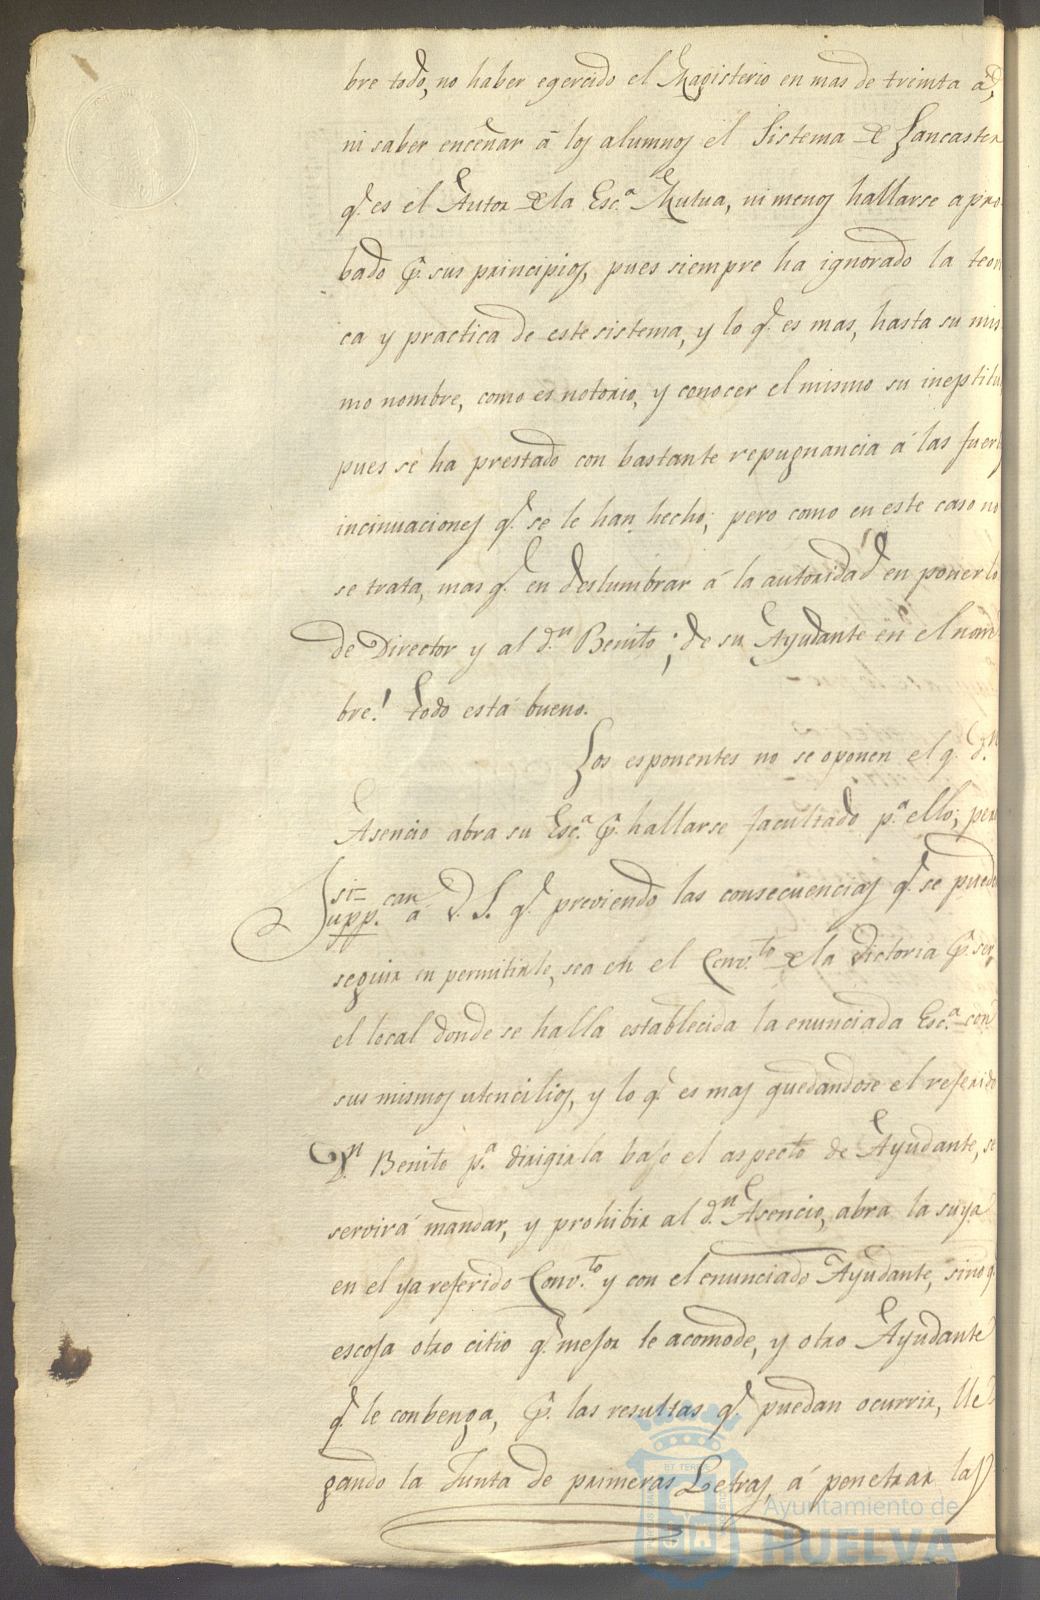 bre todo, no haber egercido el Magisterio en mas de treinta a.s,
ni saber enceñar á los alumnos el Sistema de Lancaster
q.e es el Autor de la Esc.a Mutua, ni menos hallarse apro
bado p.r sus principios, pues siempre ha ignorado la teori
ca y practica de este sistema, y lo q.e es mas, hasta su mis
mo nombre, como es notorio, y conocer el mismo su ineptitu
pues se ha prestado con bastante repugnancia á las fuer
incinuaciones q.e se le han hecho; pero como en este caso no
se trata, mas q.e en deslumbrar á la autoridad en ponerlo
de Director y al d.n Benito; de su Ayudante en el nom
bre! todo está bueno.
Los esponentes no se oponen el q. d.n
Asencio abra su Esc.a p.r hallarse facultado p.a ello; pero
si
Supp.can á V.S. q.e previendo las consecuencias q.e se puede
seguir en permitirle, sea en el Conv.to de la Victoria p.r ser
el local donde se halla establecida la enunciada Esc.a con
sus mismos utencilios, y lo q.e es mas quedandose el referido
D.n Benito p.a dirigirla bajo el aspecto de Ayudante, se
servirá mandar, y prohibir al d.n Asencio, abra la suya
en el ya referido Conv.to y con el enunciado Ayudante, sino q.
escoja otro citio q.e mejor le acomode, y otro Ayudante
q.e le conbenga, p.r las resultas q.e puedan ocurrir, lle
gando la Junta de primeras Letras á penetrar las
Ayuntamiento de
HUELVA